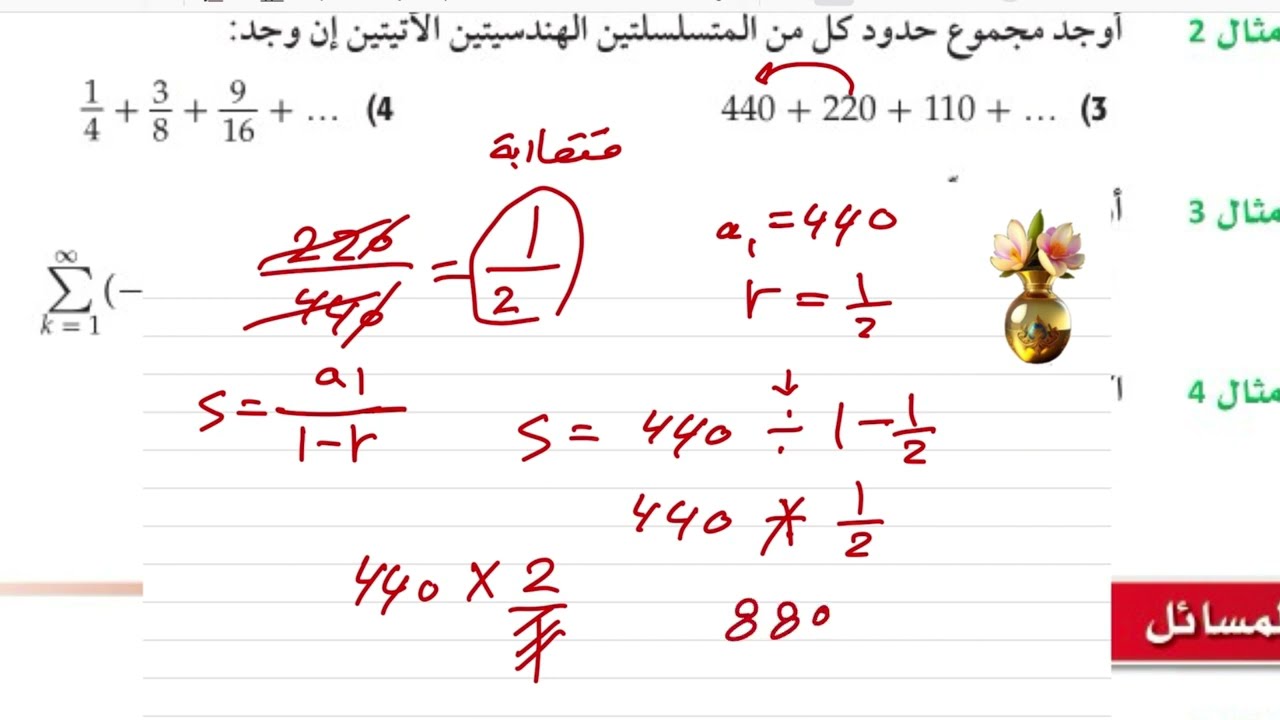 مثال 2 أوجد مجموع حدود كل من المتسلسلتين الهندسيتين الآتيتين إن وجد:
(3 440 + 220 + 110 + …
(4 1/4 + 3/8 + 9/16 + …
متقاربة
مثال 3
a₁ = 440
220/440 = 1/2
r = 1/2
∞ ∑ k = 1 (−
مثال 4
S = a1/(1-r)
S = 440 ÷ 1 - 1/2
440 ÷ 1/2
440 × 2/1
880
لمسائل